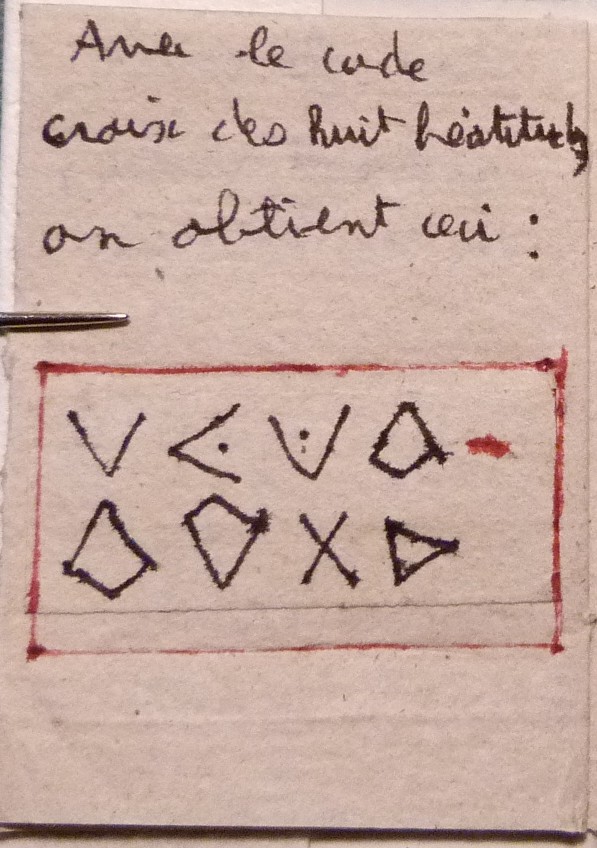 Avec le code
croix des huit béatitudes
on obtient ceci :